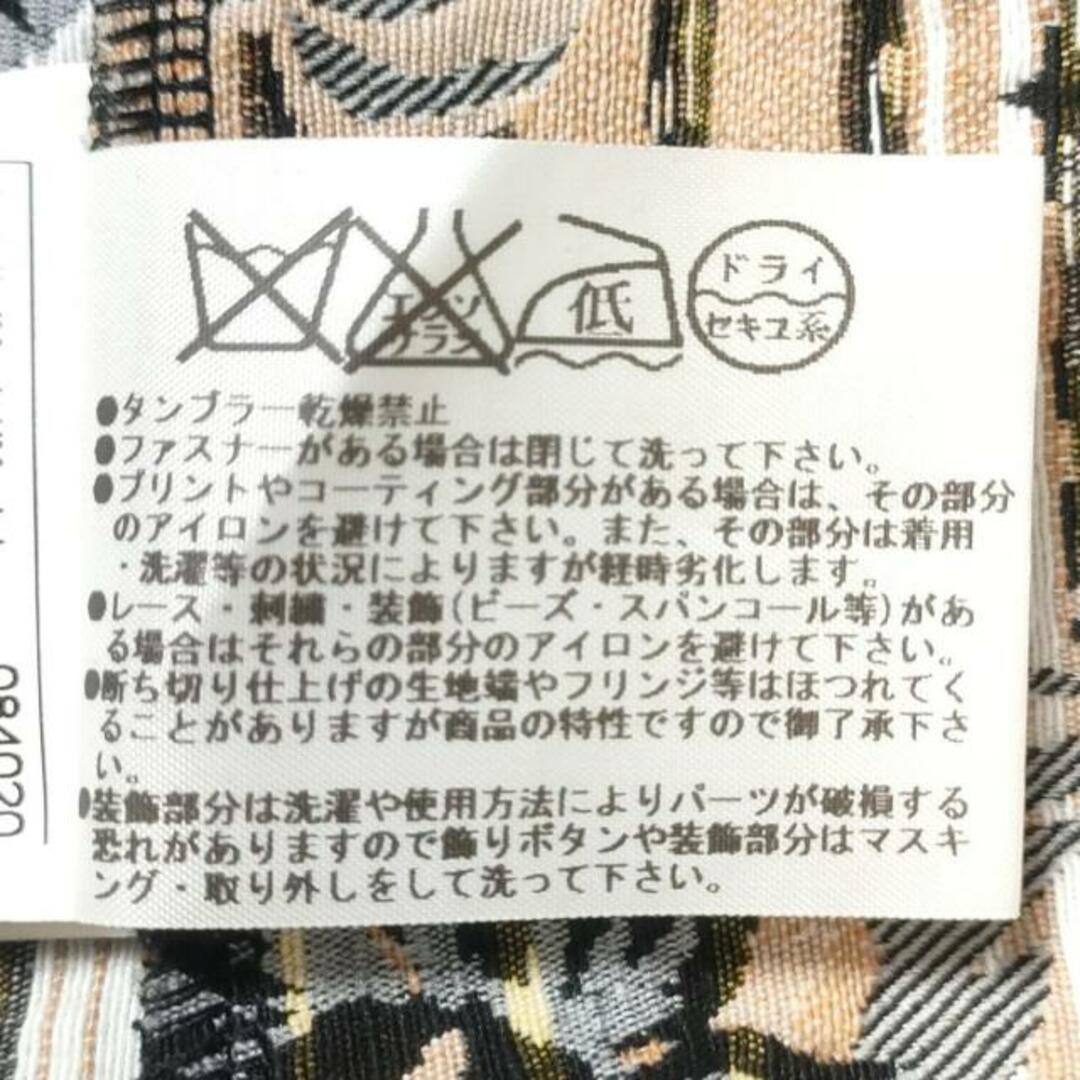 エンソ
サラシ
低
ドライ
セキユ系
●タンブラー乾燥禁止
●ファスナーがある場合は閉じて洗って下さい。
●プリントやコーティング部分がある場合は、その部分
のアイロンを避けて下さい。また、その部分は着用
・洗濯等の状況によりますが経時劣化します。
●レース・刺繍・装飾(ビーズ・スパンコール等)があ
る場合はそれらの部分のアイロンを避けて下さい。
●断ち切り仕上げの生地端やフリンジ等はほつれてく
ることがありますが商品の特性ですので御了承下さ
い。
●装飾部分は洗濯や使用方法によりパーツが破損する
恐れがありますので飾りボタンや装飾部分はマスキ
ング・取り外しをして洗って下さい。